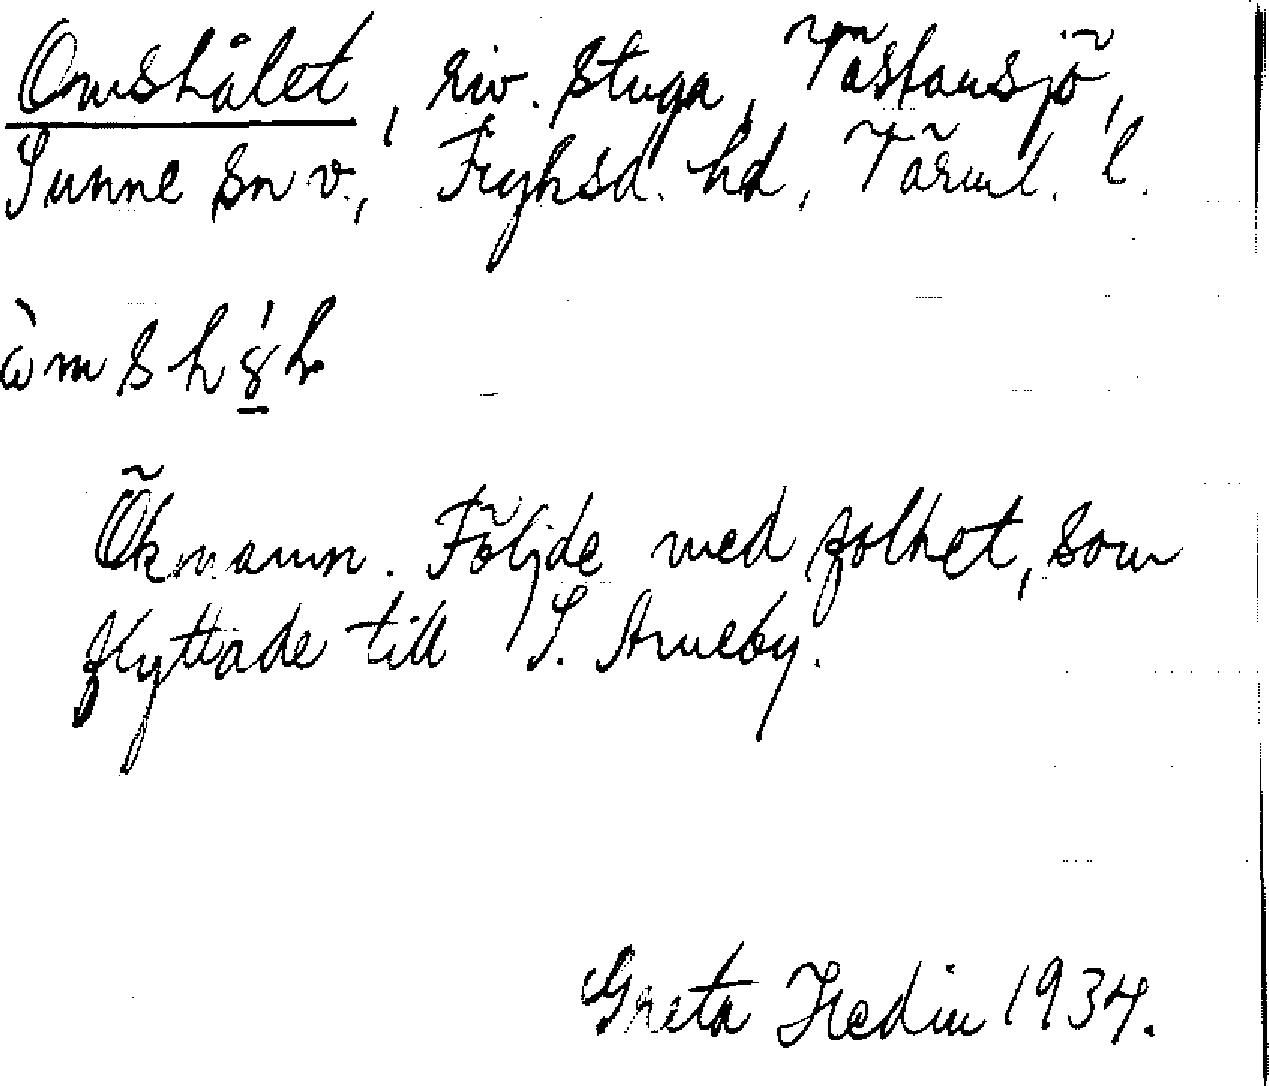 Omshålet, riv. stuga, Västansjö,
Sunne sn v., Fryksd. hd, Värml. l.
Öknamn. Följde med folket, som
flyttade till S. Arneby.
Greta Hedin 1934.